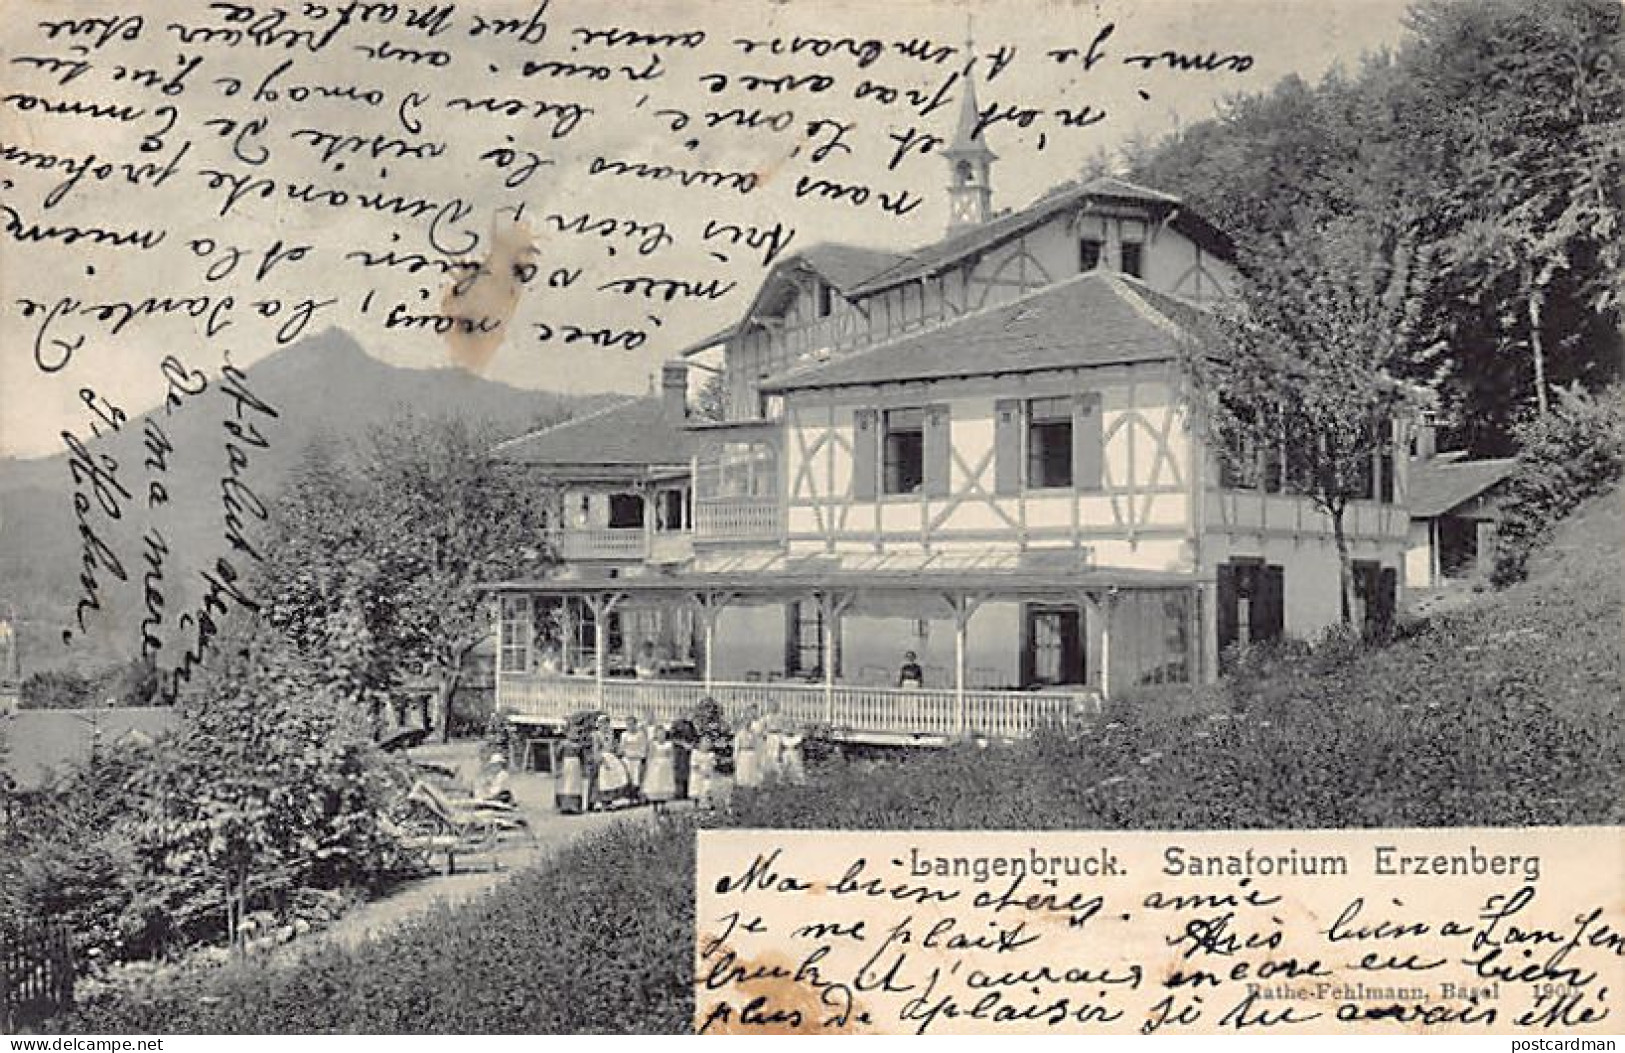 Langenbruck. Sanatorium Erzenberg
Ma bien chères amie
je me plait très bien a Langen
bruk et j'aurais encore eu bien
plus de aplaisir si tu avais été
Rathe-Fehlmann, Basel 190
avec nous, la sante de
mère va bien et la mienne
très bien, Dimanche prohain
nous aurons la visite de Emma
et Léonie, bien domage que tu
n'est pas avec nous. aux revoir chère
amie je t'embrasse ainsi que Martha
salut
de ma mère
postcardman